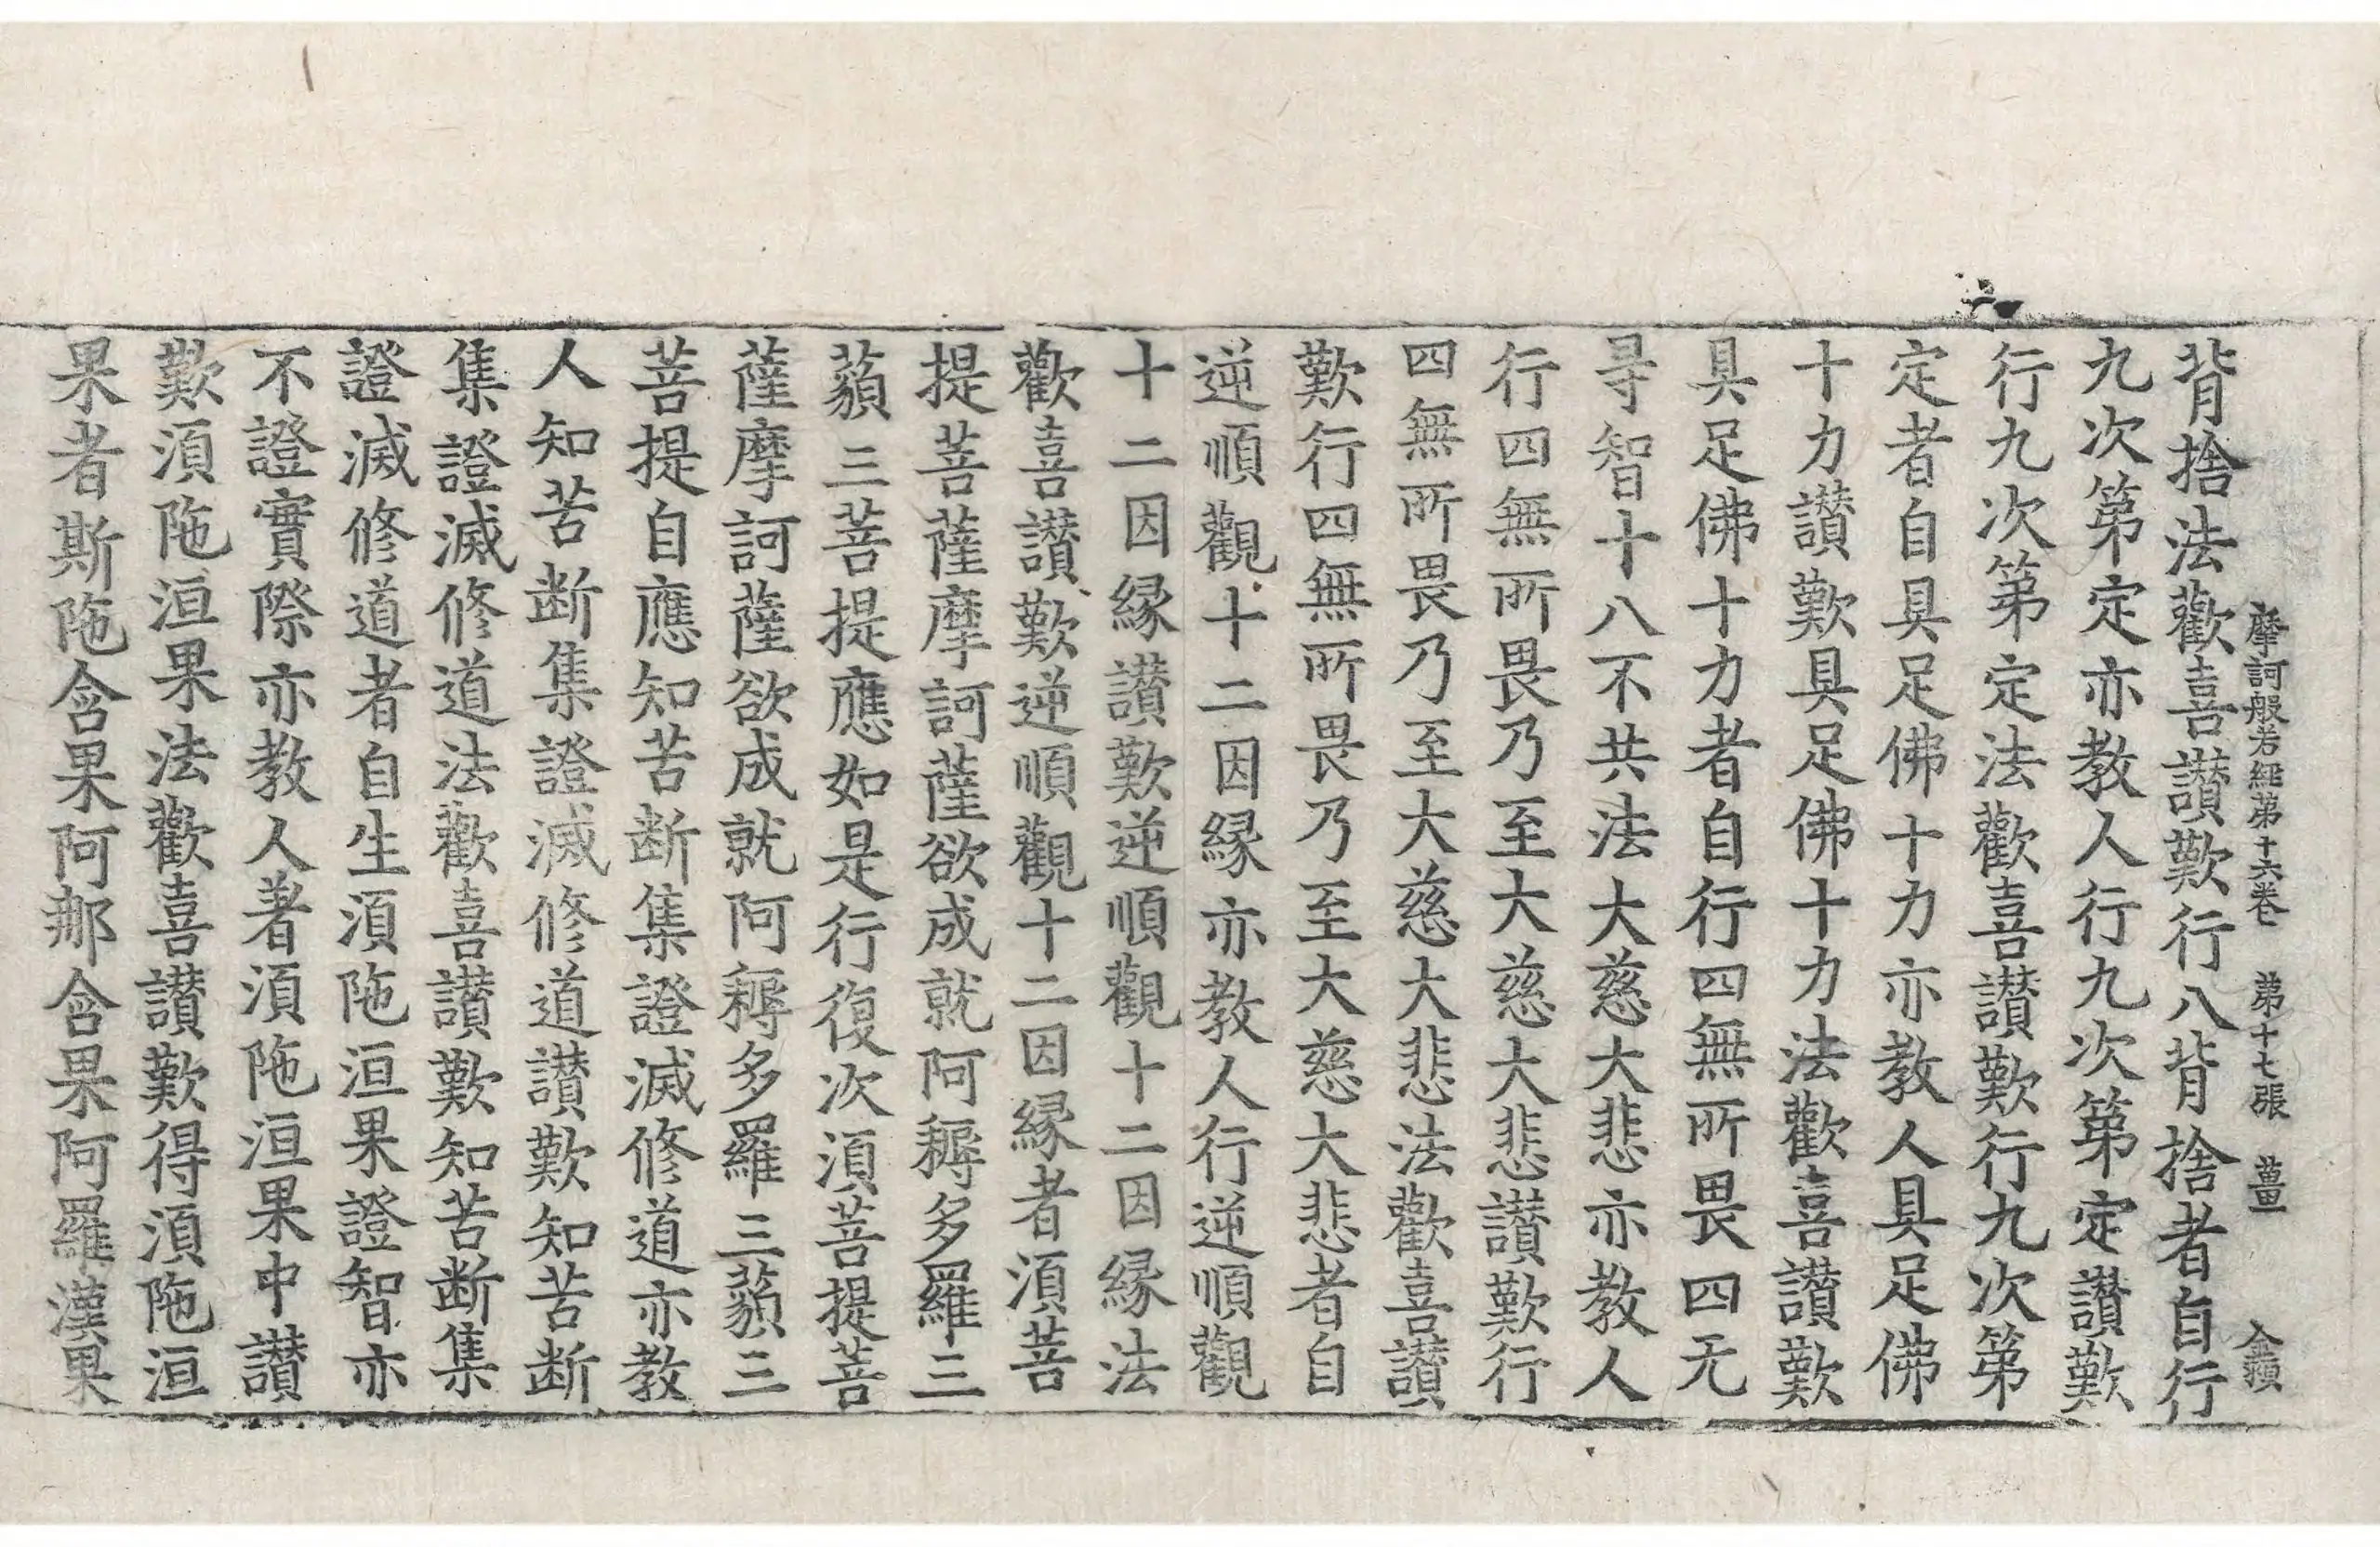 摩訶般若經第十六卷 第十七張 薑
背捨法歡喜讃歎行八背捨者自行
九次第定亦教人行九次第定讃歎
行九次第定法歡喜讃歎行九次第
定者自具足佛十力亦教人具足佛
十力讃歎具足佛十力法歡喜讃歎
具足佛十力者自行四無所畏四无
㝵智十八不共法大慈大悲亦教人
行四無所畏乃至大慈大悲讃歎行
四無所畏乃至大慈大悲法歡喜讃
歎行四無所畏乃至大慈大悲者自
逆順觀十二因縁亦教人行逆順觀
十二因縁讃歎逆順觀十二因縁法
歡喜讃歎逆順觀十二因縁者湏菩
提菩薩摩訶薩欲成就阿耨多羅三
藐三菩提應如是行復次湏菩提菩
薩摩訶薩欲成就阿耨多羅三藐三
菩提自應知苦断集證滅修道亦教
人知苦断集證滅修道讃歎知苦断
集證滅修道法歡喜讃歎知苦断集
證滅修道者自生湏陁洹果證智亦
不證實際亦教人著湏陁洹果中讃
歎湏陁洹果法歡喜讃歎得湏陁洹
果者斯陁含果阿那含果阿羅漢果